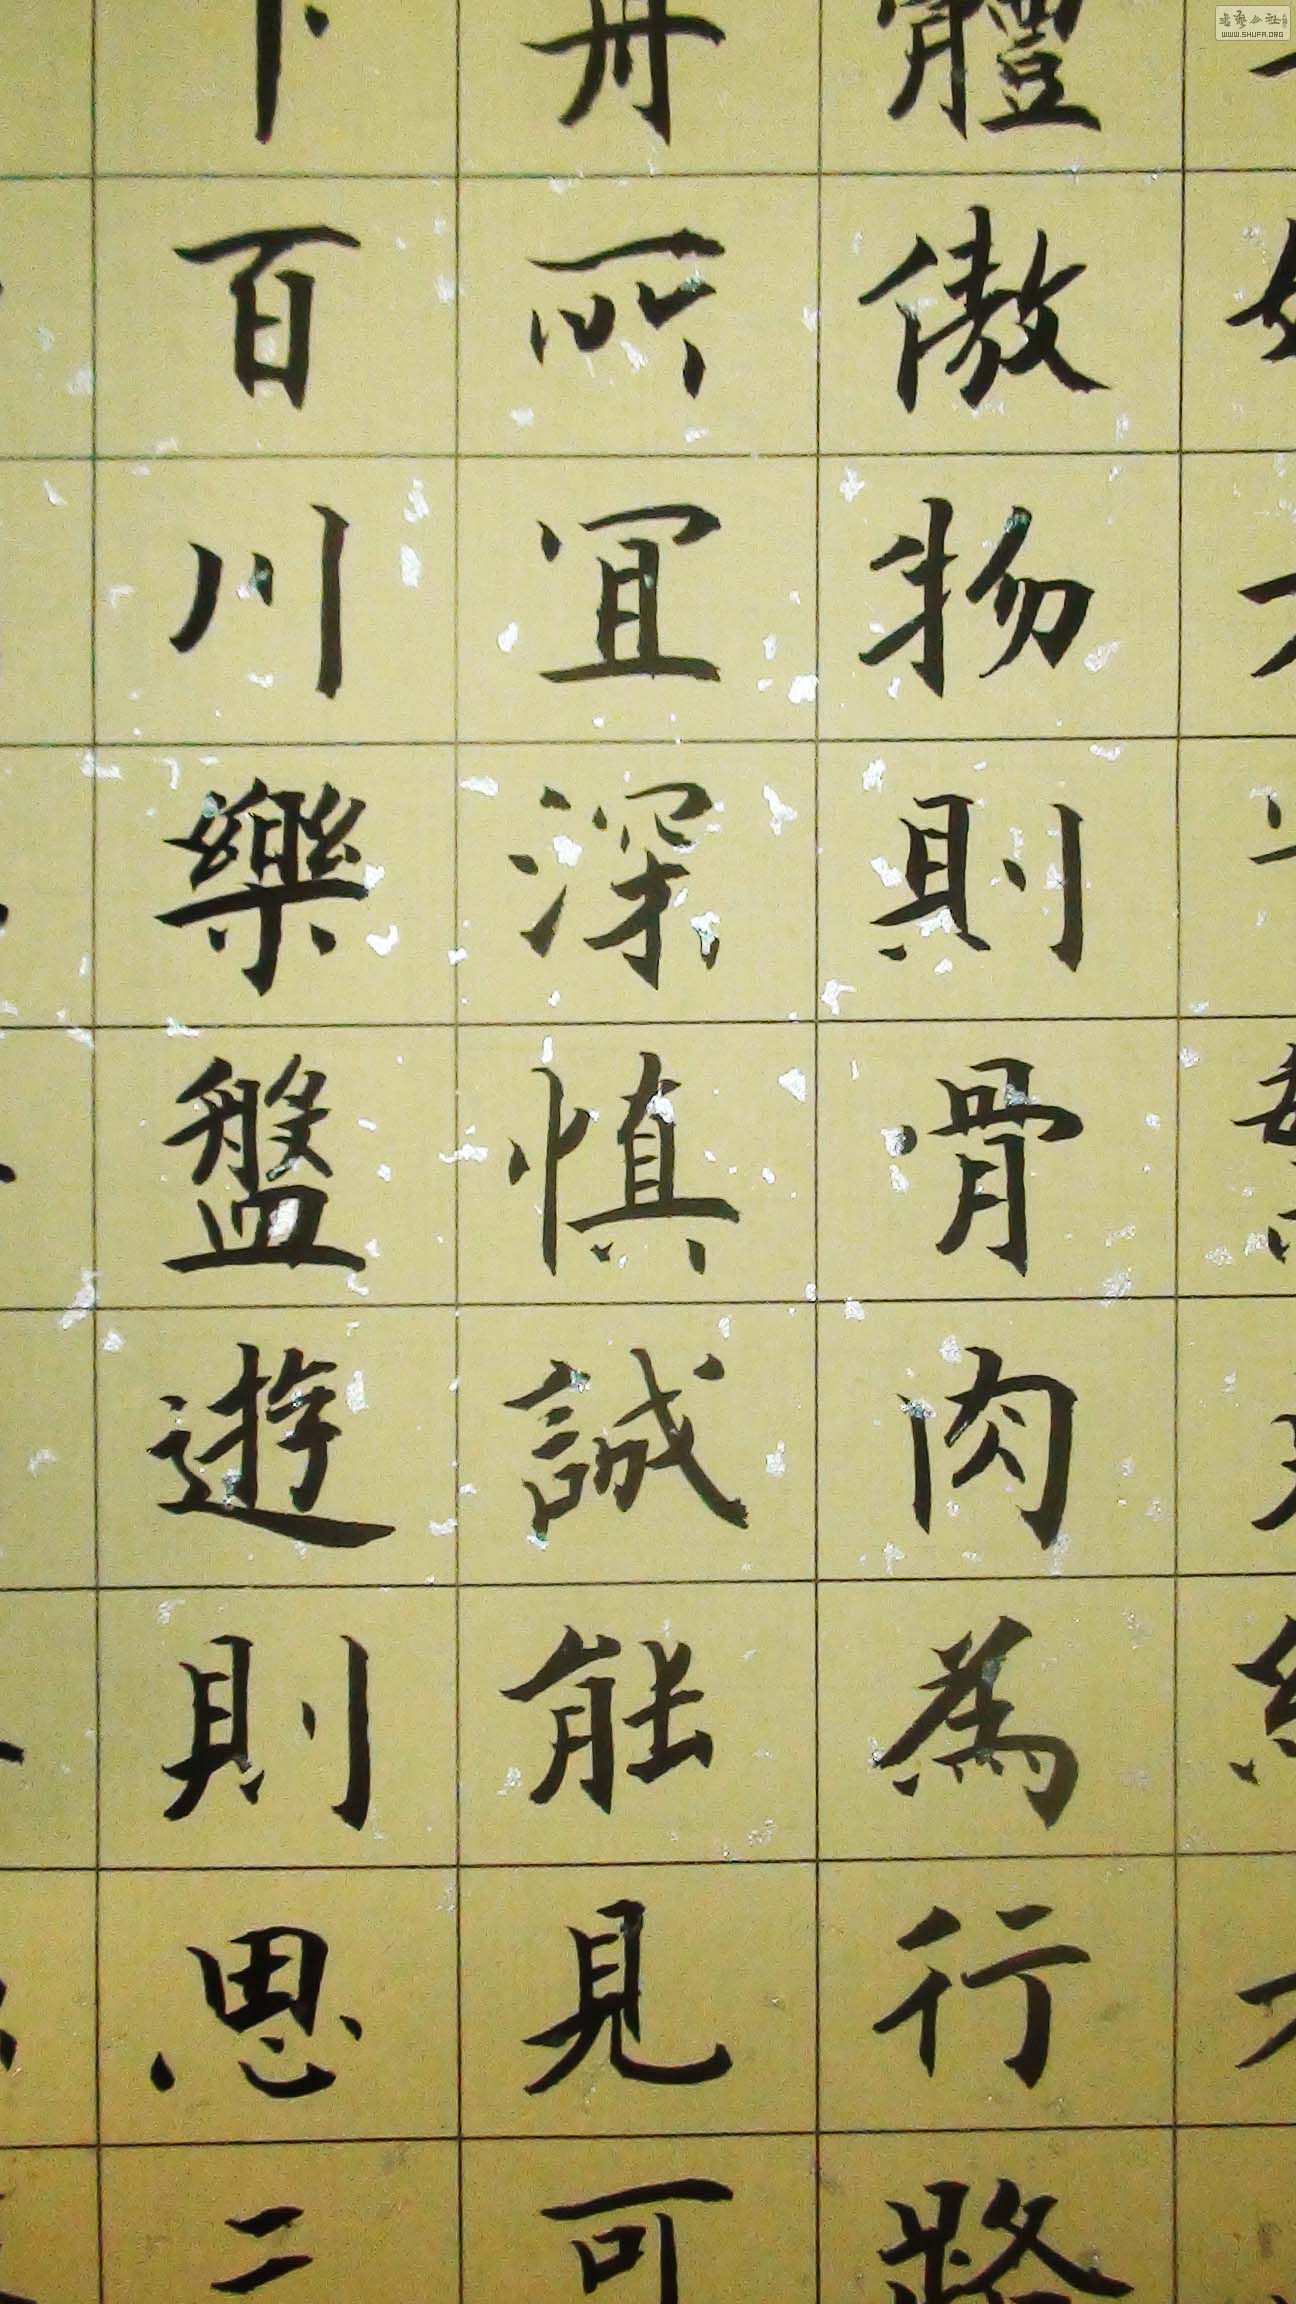 體傲物則骨肉為行路
舟所宜深慎誠能見可
下百川樂盤遊則思二
WWW.SHUFA.ORG